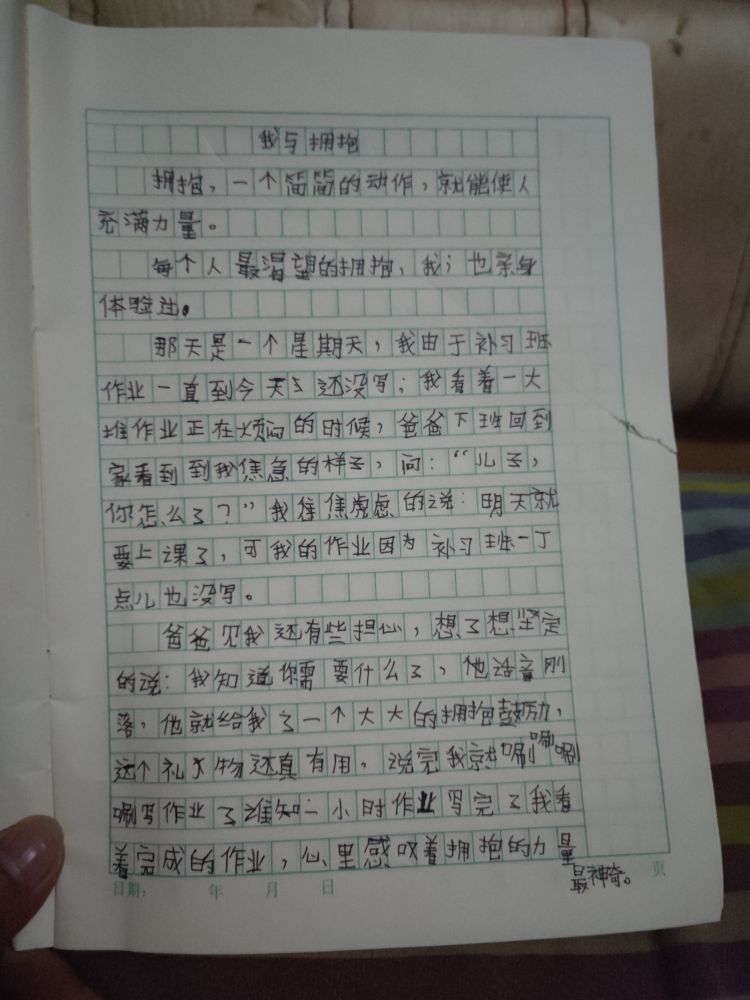 我与拥抱
拥抱，一个简简的动作，就能使人
充满力量。
每个人最渴望的拥抱，我；也亲身
体验过。
那天是一个星期天，我由于补习班
作业一直到今天了还没写；我看着一大
堆作业正在烦闷的时候，爸爸下班回到
家看到到我焦急的样子，问：“儿子，
你怎么了？”我焦虑的说：明天就
要上课了，可我的作业因为补习班一丁
点儿也没写。
爸爸见我还有些担心，想了想坚定
的说：我知道你需要什么了，他话音刚
落，他就给我了一个大大的拥抱鼓励，
这个礼物还真有用，说完我就唰唰唰
唰写作业了谁知一小时作业写完了我看
着完成的作业，心里感叹着拥抱的力量
最神奇。
日期： 年 月 日 页